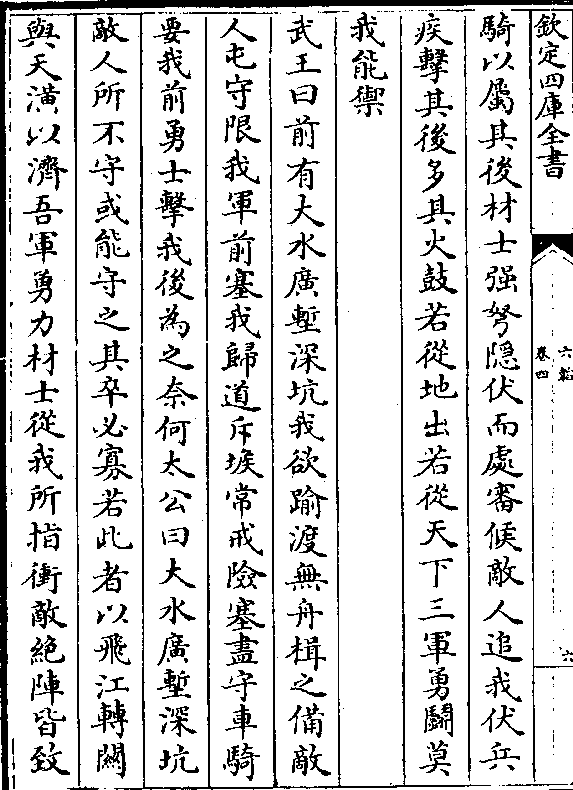 欽定四庫全書
六韜
卷四
六
騎以屬其後材士强弩隱伏而處審候敵人追我伏兵
疾擊其後多其火鼓若從地出若從天下三軍勇鬭莫
我能禦
武王曰前有大水廣塹深坑我欲踰渡無舟楫之備敵
人屯守限我軍前塞我歸道斥堠常戒險塞盡守車騎
要我前勇士擊我後為之奈何太公曰大水廣塹深坑
敵人所不守或能守之其卒必寡若此者以飛江轉關
與天潢以濟吾軍勇力材士從我所指衝敵絶陣皆致